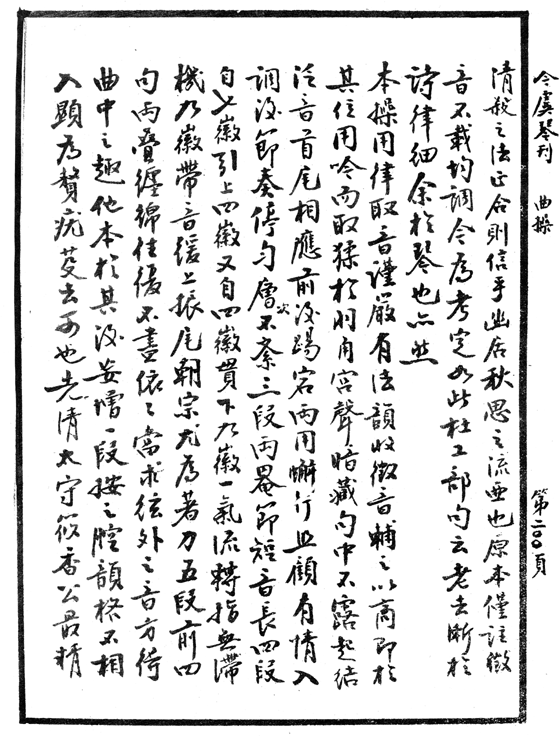 今虞琴刊 曲操 第二〇〇頁
清殺之法正合則信乎幽居秋思之流亞也原本僅註徵
音不載均調今為考定如此杜工部句云老去漸於
詩律細余於琴也亦然
本操用律取音謹嚴有法韻收徵音輔之以商即於
其位用吟而取猱於羽角宮聲暗藏句中不露起結
泛音首尾相應前後踢宕兩用蠏行且顧有情入
調後節奏停勻層次不紊三段兩罨節短音長四段
自七徽引上四徽又自四徽貫下九徽一氣流轉指無滯
機九徽帶音緩上振尾朝宗尤為著力五段前四
句兩疊纏綿往復不盡依依當求弦外之音方得
曲中之趣他本於其後妄增一段按之腔韻格不相
入顯為贅疣芟去可也先清太守筱香公最精